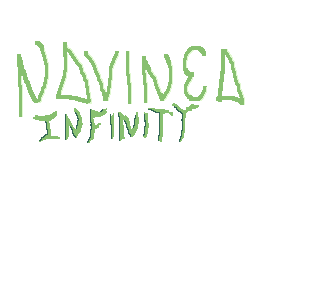 NOVINED
INFINITY